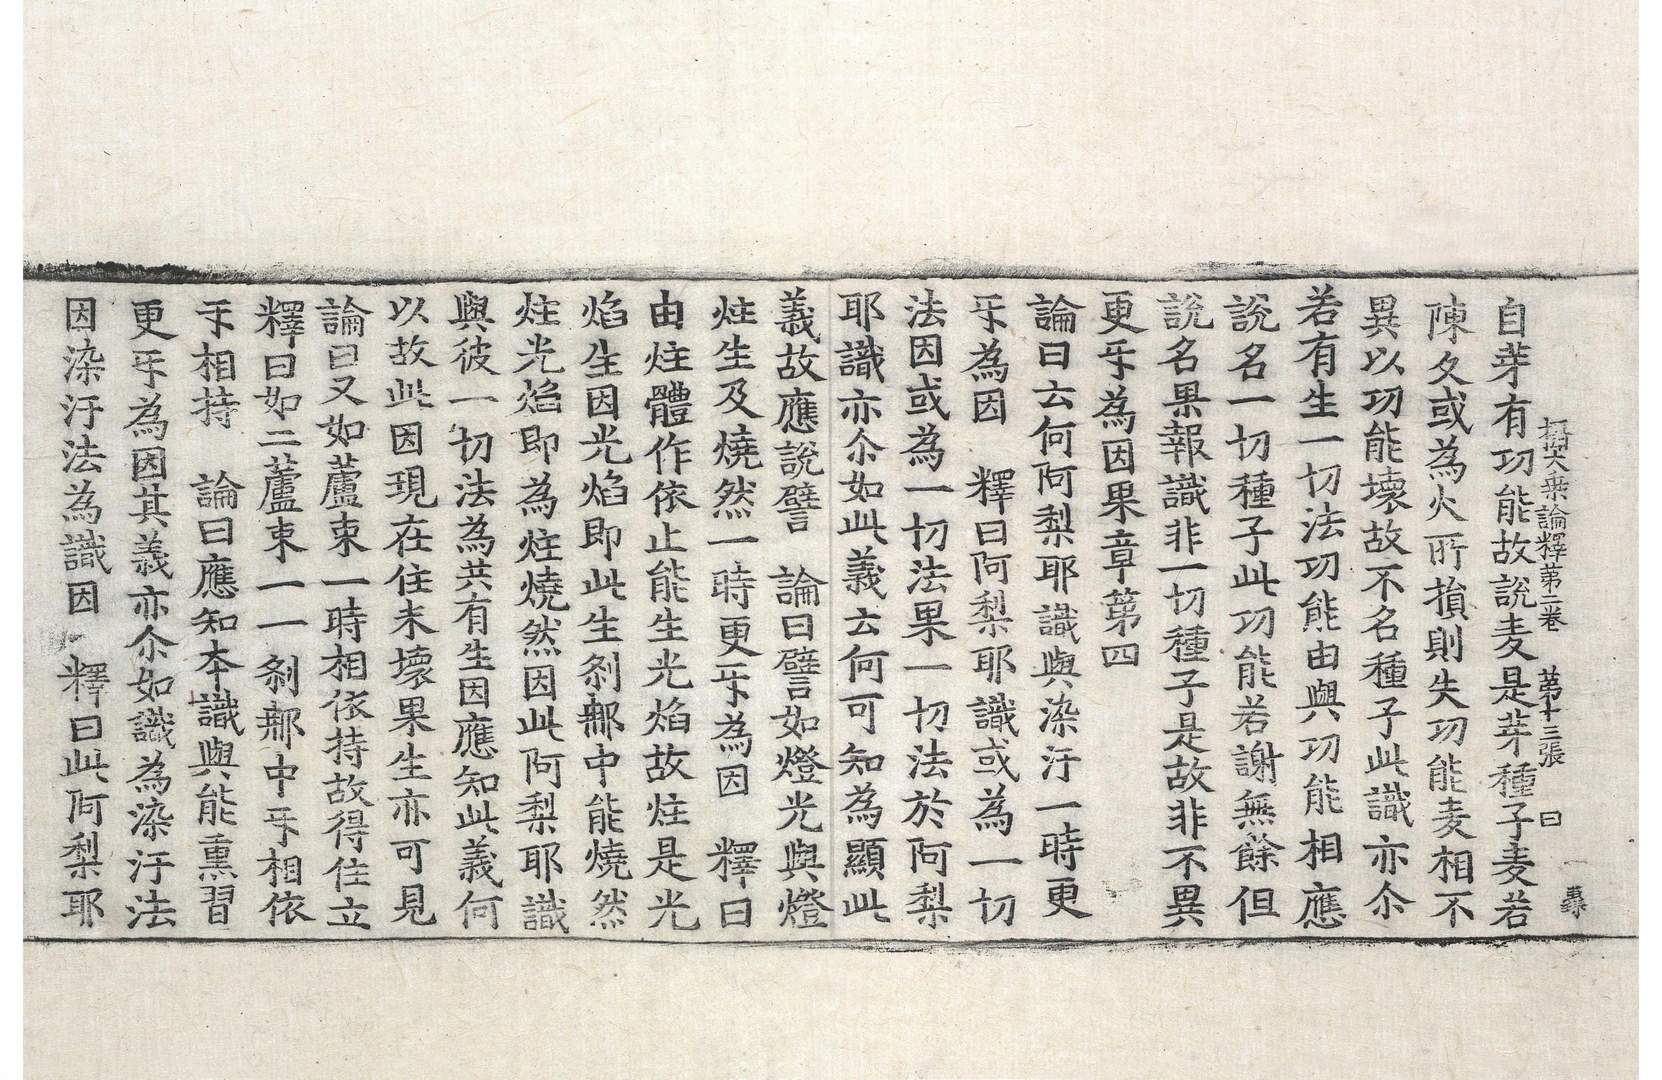 攝大乘論釋第二卷 第十三張 曰
自芽有功能故說麦是芽種子麦若
陳久或為火所損則失功能麦相不
異以功能壞故不名種子此識亦尒
若有生一切法功能由與功能相應
說名一切種子此功能若謝無餘但
說名果報識非一切種子是故非不異
更㸦為因果章第四
論曰云何阿梨耶識與染汙一時更
㸦為因 釋曰阿梨耶識或為一切
法因或為一切法果一切法於阿梨
耶識亦尒如此義云何可知為顯此
義故應說譬 論曰譬如燈光與燈
炷生及燒然一時更㸦為因 釋曰
由炷體作依止能生光焰故炷是光
焰生因光焰即此生刹𨙻中能燒然
炷光焰即為炷燒然因此阿梨耶識
與彼一切法為共有生因應知此義何
以故此因現在住未壞果生亦可見
論曰又如蘆束一時相依持故得住立
釋曰如二蘆束一一刹𨙻中㸦相依
㸦相持 論曰應知本識與能熏習
更㸦為因其義亦尒如識為染汙法
因染汙法為識因 釋曰此阿梨耶